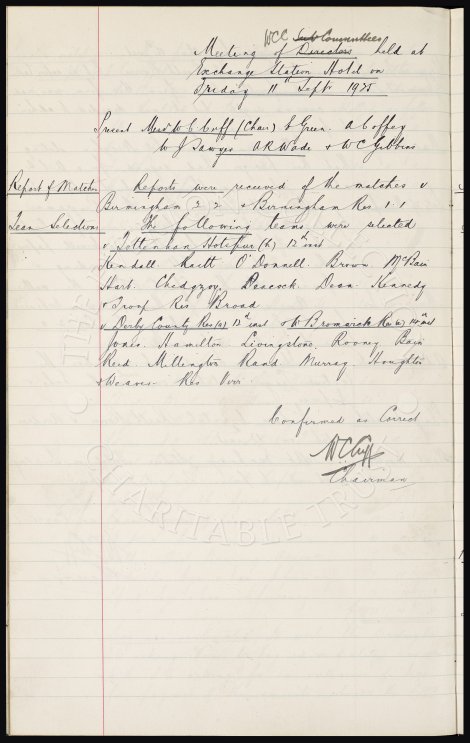 WCC Sub Committee
Meeting of Directors held at
Exchange Station Hotel on
Friday 11th Septr 1925
Present Messrs W C Cuff (Chair) E Green. A Coffey
W J Sawyer A R Wade & W C Gibbins
Report of Matches
Reports were received of the matches v
Birmingham 2. 2 & Birmingham Res. 1. 1
Team Selections
The following teams were selected
v Tottenham Hotspur (h) 12th inst
Kendall Raitt O'Donnell. Brown McBain
Hart. Chedgzoy. Peacock. Dean. Kennedy
& Troup Res Broad
v Derby County Res (a) 12th inst & W Bromwich Res (a) 14th inst
Jones. Hamilton. Livingstone. Rooney. Bain
Reid. Millington Rand. Murray. Houghton
& Weaver. Res Virr
Confirmed as Correct
W C Cuff
Chairman
CHARITABLE TRUST